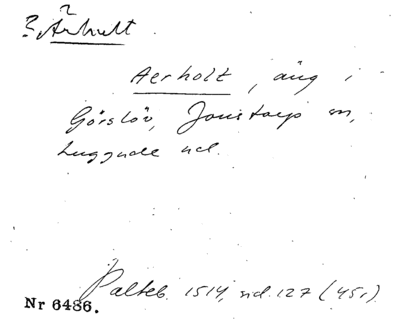 ? Århult
Aerholt, äng i
Görslöv, Jonstorps sn,
Luggude hd.
Palteb. 1514, sid. 127 (45r)
Nr 6486.